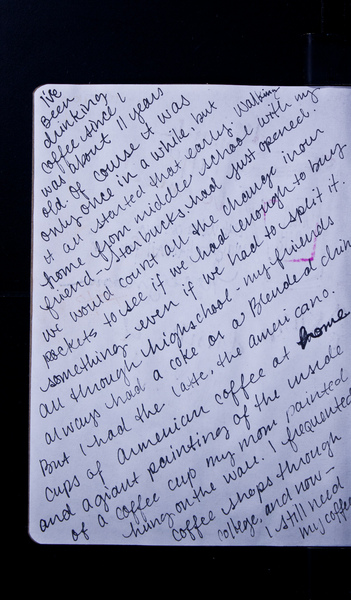 I've
been
drinking
coffee since I
was about 11 years
old. Of course it was
only once in a while, but
it all started that early. Walking
home from middle school with my
friend - Starbucks had just opened.
we would count all the change in our
pockets to see if we had enough to buy
something - even if we had to split it.
all through highschool - my friends
always had a coke or a Blended
But I had the latte, the americano.
cups of armenian coffee at home
and a giant painting of the inside
of a coffee cup my mom painted
hung on the wall. I frequented
coffee shops through
college, and now -
I still need
my coffee